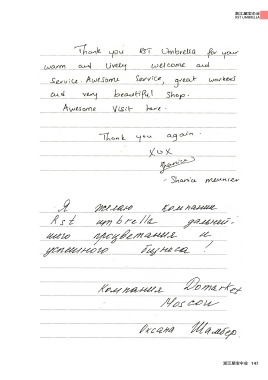 浙江星宝伞业
RST UMBRELLA
Thank you RST Umbrella for your
warm and lively welcome and
service. Awesome Service, great workers
and very beautiful shop.
Awesome Visit here.
Thank you again.
XOX
Shanice
- Shanice meunier
Я желаю компании
Rst umbrella дальней-
шего процветания и
успешного бизнеса!
Компания Domarket
Moscow
Оксана Шамбер.
浙江星宝伞业 141